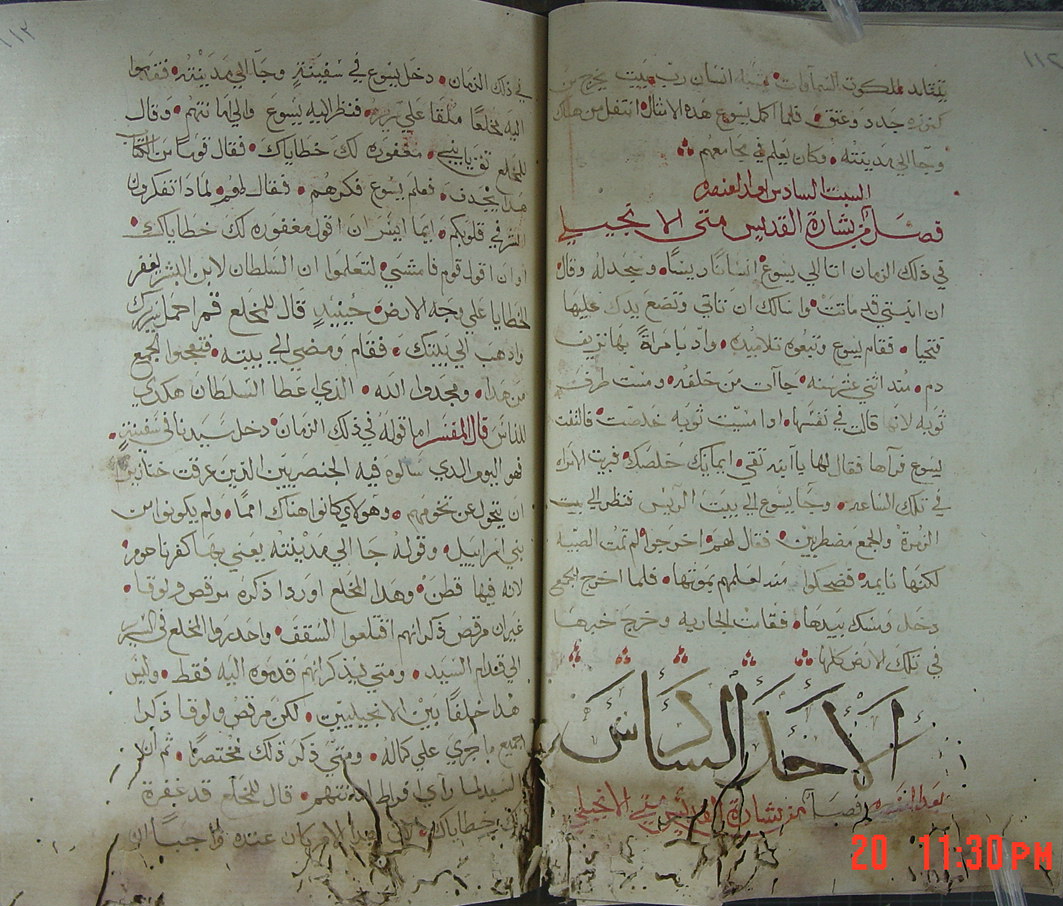 ١١٢
يقتلد ملكوت السماوات يشبه انسان رب بيت يخرج من
كنوزه جدد وعتق فلما اكمل يسوع هذه الامثال انتقل من هناك
وجا الي مدينته وكان يعلم في مجامعهم
السبت السادس بعد العنصره
فصل من بشارة القديس متى الانجيلي
في ذلك الزمان اتا الي يسوع انسانا ريسا وسجد له وقال
ان ابنتي قد ماتت وانا سالك ان تاتي وتضع يدك عليها
فتحيا فقام يسوع وتبعوه تلاميذه واذ بامراةً بها نزيف
دم منذ اثني عشر سنه جاات من خلفه ومست طرف
ثوبه لانها قالت في نفسها اذا مسيت ثوبه خلصت فالتفت
يسوع فرآها فقال لها ياابنه تقي ايمانك خلصك فبرت الامراه
في تلك الساعه وجا يسوع الي بيت الريس فنظر الي بيت
الزمرة والجمع مضطربين فقال لهم اخرجوا لم تمت الصبيه
لكنها نايمه فضحكوا منه لعلمهم بموتها فلما اخرج الجمع
دخل ومسك بيدها فقامت الجاريه وخرج خبرها
في تلك الارض كلها
الاحد السادس
بعد العنصره فصل من بشارة القديس متي الانجيلي
١١٣
في ذلك الزمان دخل يسوع في سفينةٍ وجا الي مدينته فقدموا
اليه مخلعًا ملقا علي سرير فنظر اليه يسوع والي امانتهم وقال
للمخلع تق يا بني مغفوره لك خطاياك فقال قومًا من الكتاب
هذا يجدف فعلم يسوع فكرهم فقال لهم لماذا تفكرون
الشر في قلوبكم ايما ايسر ان اقول مغفوره لك خطاياك
او ان اقول قوم فامشي لتعلموا ان السلطان لابن البشر يغفر
الخطايا علي وجه الارض حينيذٍ قال للمخلع قم احمل سريرك
واذهب الي بيتك فقام ومضي الي بيته فتعجبوا الجمع
من هذا ومجدوا الله الذي اعطا السلطان هكدي
للناس قال المفسر اما قوله في ذلك الزمان دخل سيدنا في سفينةٍ
فهو اليوم الدي سالوه فيه الجنصريين الذين غرقت خنازيرهم
ان يتحول عن تخومهم وهولاي كانوا هناك اممًا ولم يكونوا من
بني اسراييل وقوله جا الي مدينته يعني بها كفرناحوم
لانه فيها قطن وهدا المخلع اوردا ذكره مرقص ولوقا
غير ان مرقص ذكر انهم اقلعوا السقف واحدروا المخلع في السرير
الي قدام السيد ومتي يذكر انهم قدموه اليه فقط وليس
هذا خلفًا بين الانجيليين لكن مرقص ولوقا ذكرا
جميع ما جري علي كماله ومتي ذكر ذلك مختصرًا ثم ان
السيد لما رآي فراط امانتهم قال للمخلع قد غفرة
لك خطاياك